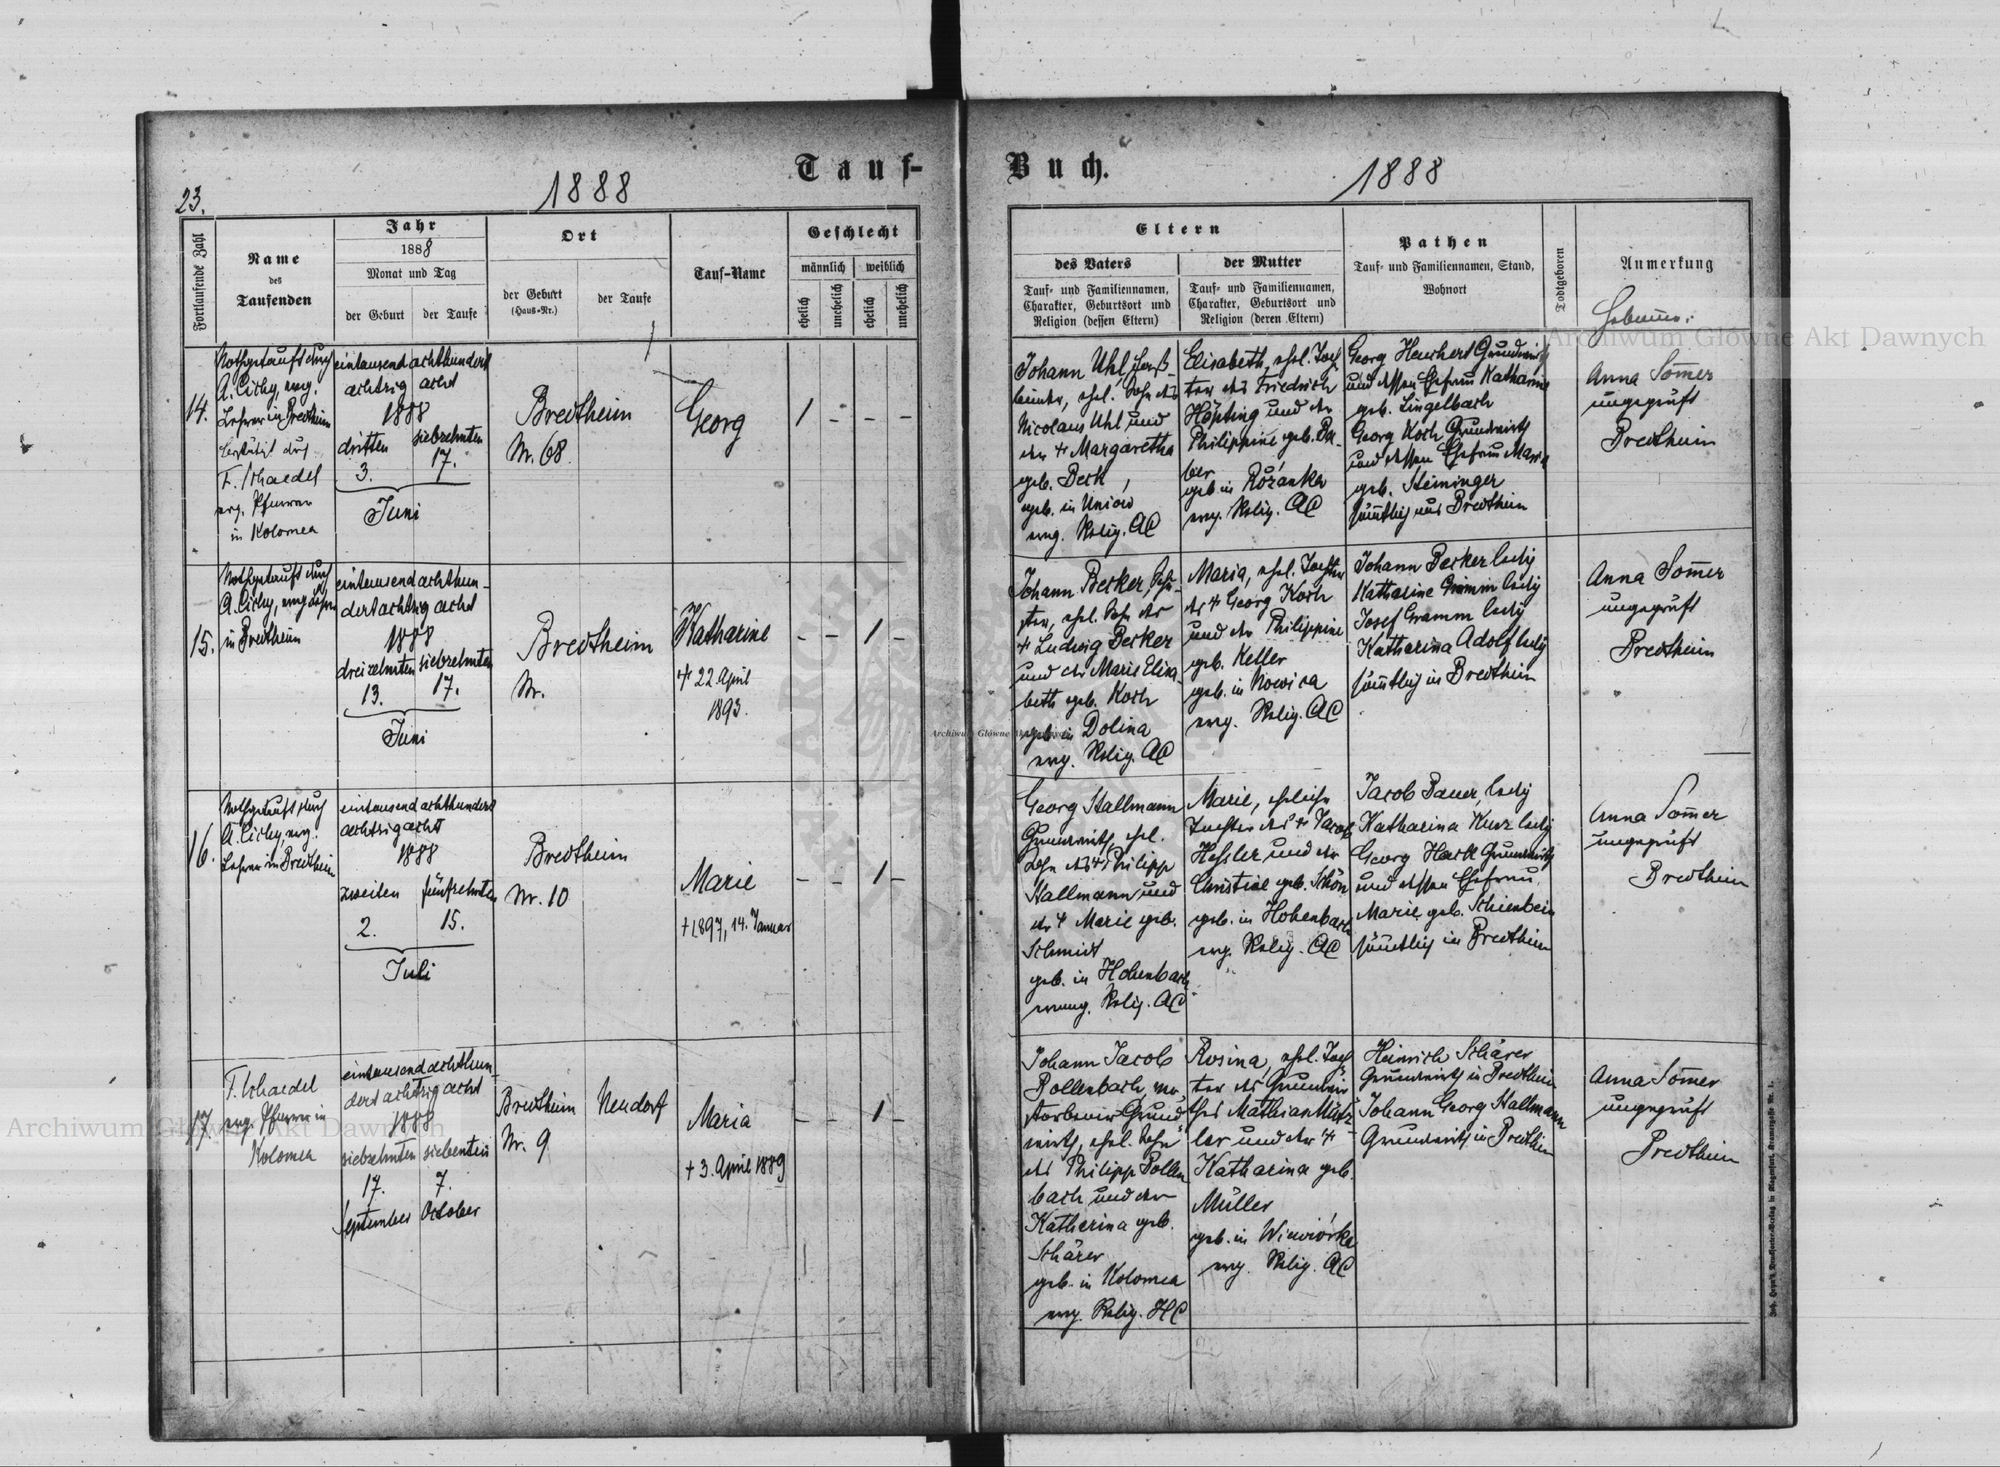 Tauf-
Buch.
23.
1888
1888
Fortlaufende Zahl
Name
des
Taufenden
Jahr
1888
Monat und Tag
der Geburt
der Taufe
Ort
der Geburt
(Haus-Nr.)
der Taufe
Tauf-Name
Geschlecht
männlich
weiblich
ehelich
unehelich
ehelich
unehelich
Eltern
des Vaters
Tauf- und Familiennamen,
Charakter, Geburtsort und
Religion (dessen Eltern)
der Mutter
Tauf- und Familiennamen,
Charakter, Geburtsort und
Religion (deren Eltern)
Pathen
Tauf- und Familiennamen, Stand,
Wohnort
Todtgeboren
Anmerkung
Hebamme:
14.
Nothgetauft durch
A. Cichy, evg.
Lehrer in Bredtheim
F. Schaedel
evg. Pfarrer
in Kolomea
eintausend achthundert
achtzig acht
1888
dritten siebzehnten
3. 17.
Juni
Bredtheim
Nr. 68
Georg
1 - - -
Johann Uhl,
ehel. Sohn des
Nicolaus Uhl und
der + Margaretha
geb. Beck,
geb. in Uniow
evg. Relig. AC
Elisabeth, ehel. Toch-
ter des Friedrich
Höpting und der
Philippine geb.
geb. in Rożanka
evg. Relig. AC
Georg Heuchert Grundwirth
und dessen Ehefrau Katharina
geb. Lingelbach
Georg Koch Grundwirth
und dessen Ehefrau Maria
geb. Steininger
sämtlich aus Bredtheim
Anna Somer
ungeprüft
Bredtheim
15.
Nothgetauft durch
A. Cichy, evg. Lehrer
in Bredtheim
eintausend achthun-
dert achtzig acht
1888
dreizehnten siebzehnten
13. 17.
Juni
Bredtheim
Nr.
Katharine
+ 22 April
1893.
- - 1 -
Johann Becker,
ehel. Sohn des
+ Ludwig Becker
und der Marie Elisa-
beth geb. Koch
geb. in Dolina
evg. Relig. AC
Maria, ehel. Tochter
des + Georg Koch
und der Philippine
geb. Keller
geb. in Nowica
evg. Relig. AC
Johann Becker ledig
Katharine Grimm ledig
Josef Gramm ledig
Katharina Adolf ledig
sämtlich in Bredtheim
Anna Somer
ungeprüft
Bredtheim
16.
Nothgetauft durch
A. Cichy, evg.
Lehrer in Bredtheim
eintausend achthundert
achtzig acht
1888
zweiten fünfzehnten
2. 15.
Juli
Bredtheim
Nr. 10
Marie
+ 1897, 14. Januar
- - 1 -
Georg Hallmann
Grundwirth, ehel.
Sohn des + Philipp
Hallmann und
der + Marie geb.
Schmidt
geb. in Hohenbach
evang. Relig. AC
Marie, eheliche
Tochter des + Jacob
Hessler und der
Christine geb. Schön
geb. in Hohenbach
evg. Relig. AC
Jacob Bauer, ledig
Katharina Kurz ledig
Georg Hack Grundwirth
und dessen Ehefrau
Marie geb. Schienbein
sämtlich in Bredtheim
Anna Somer
ungeprüft
Bredtheim
17
F. Schaedel
evg. Pfarrer in
Kolomea
eintausend achthun-
dert achtzig acht
1888
siebzehnten siebenten
17. 7.
September October
Bredtheim
Nr. 9
Neudorf
Maria
+ 3. April 1889
- - 1 -
Johann Jacob
Bollenbach, ver-
storbener Grund-
wirth, ehel. Sohn
des Philipp Bollen
bach und der
Katherina geb.
Schärer
geb. in Kolomea
evg. Relig. HC
Rosina, ehel. Toch
ter des Grundwir
thes Mathias
ler und der +
Katharina geb.
Müller
geb. in Wiewiórka
evg. Relig. AC
Heinrich Schärer
Grundwirth in Bredtheim
Johann Georg Hallmann
Grundwirth in Bredtheim
Anna Somer
ungeprüft
Bredtheim
Archiwum Główne Akt Dawnych
Archiwum Główne Akt Dawnych